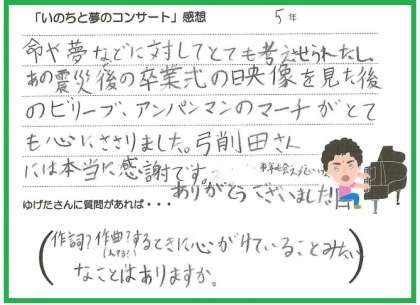 「いのちと夢のコンサート」感想 5年
命や夢などに対してとても考えさせられたし、
あの震災後の卒業式の映像を見た後
のビリーブ、アンパンマンのマーチがとて
も心にささりました。弓削田さん
には本当に感謝です。
ありがとうございました!
ゆげたさんに質問があれば・・・
(作詞?作曲?するときに心がけていることみたい
なことはありますか。)